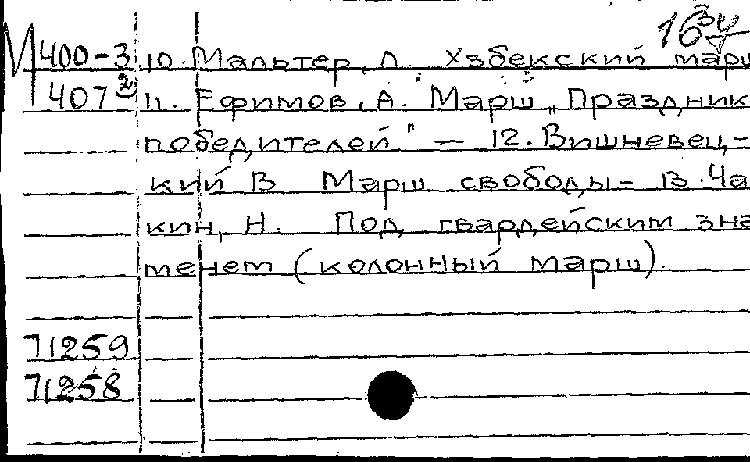 М 400-3 10. Мальтер, Л. Узбекский марш
407 2 11. Ефимов, А. Марш „Праздник
победителей" — 12. Вишневец-
кий В Марш свободы - 13. Ча
кин, Н. Под гвардейским зна
менем (колонный марш).
71259
71258